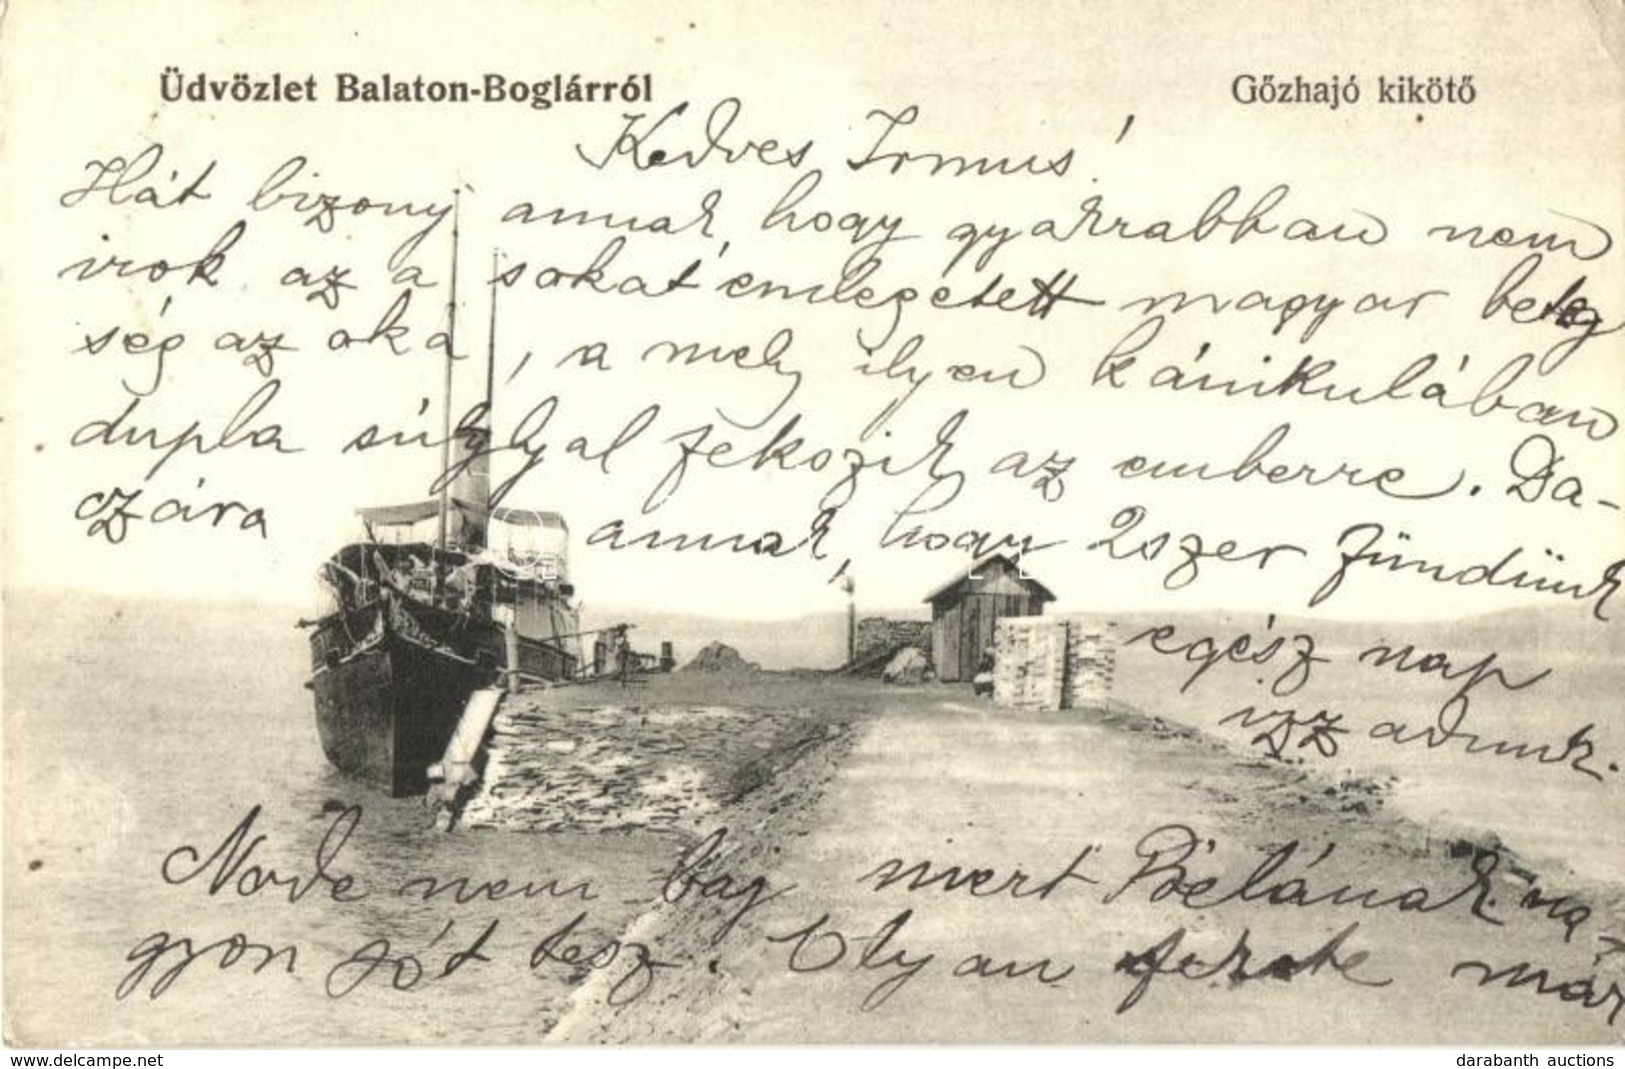 Üdvözlet Balaton-Boglárról
Gőzhajó kikötő
Kedves Irmus!
Hát bizony annak, hogy gyakrabban nem
irok az a sokat emlegetett magyar beteg
ség az oka, a mely ilyen kánikulában
dupla súlylyal fekszik az emberre. Da-
czára annak, hogy 2szer fürdünk
egész nap
izzadunk.
No de nem baj mert Bélának na-
gyon jót tesz. Olyan fekete már
www.delcampe.net
darabanth auctions